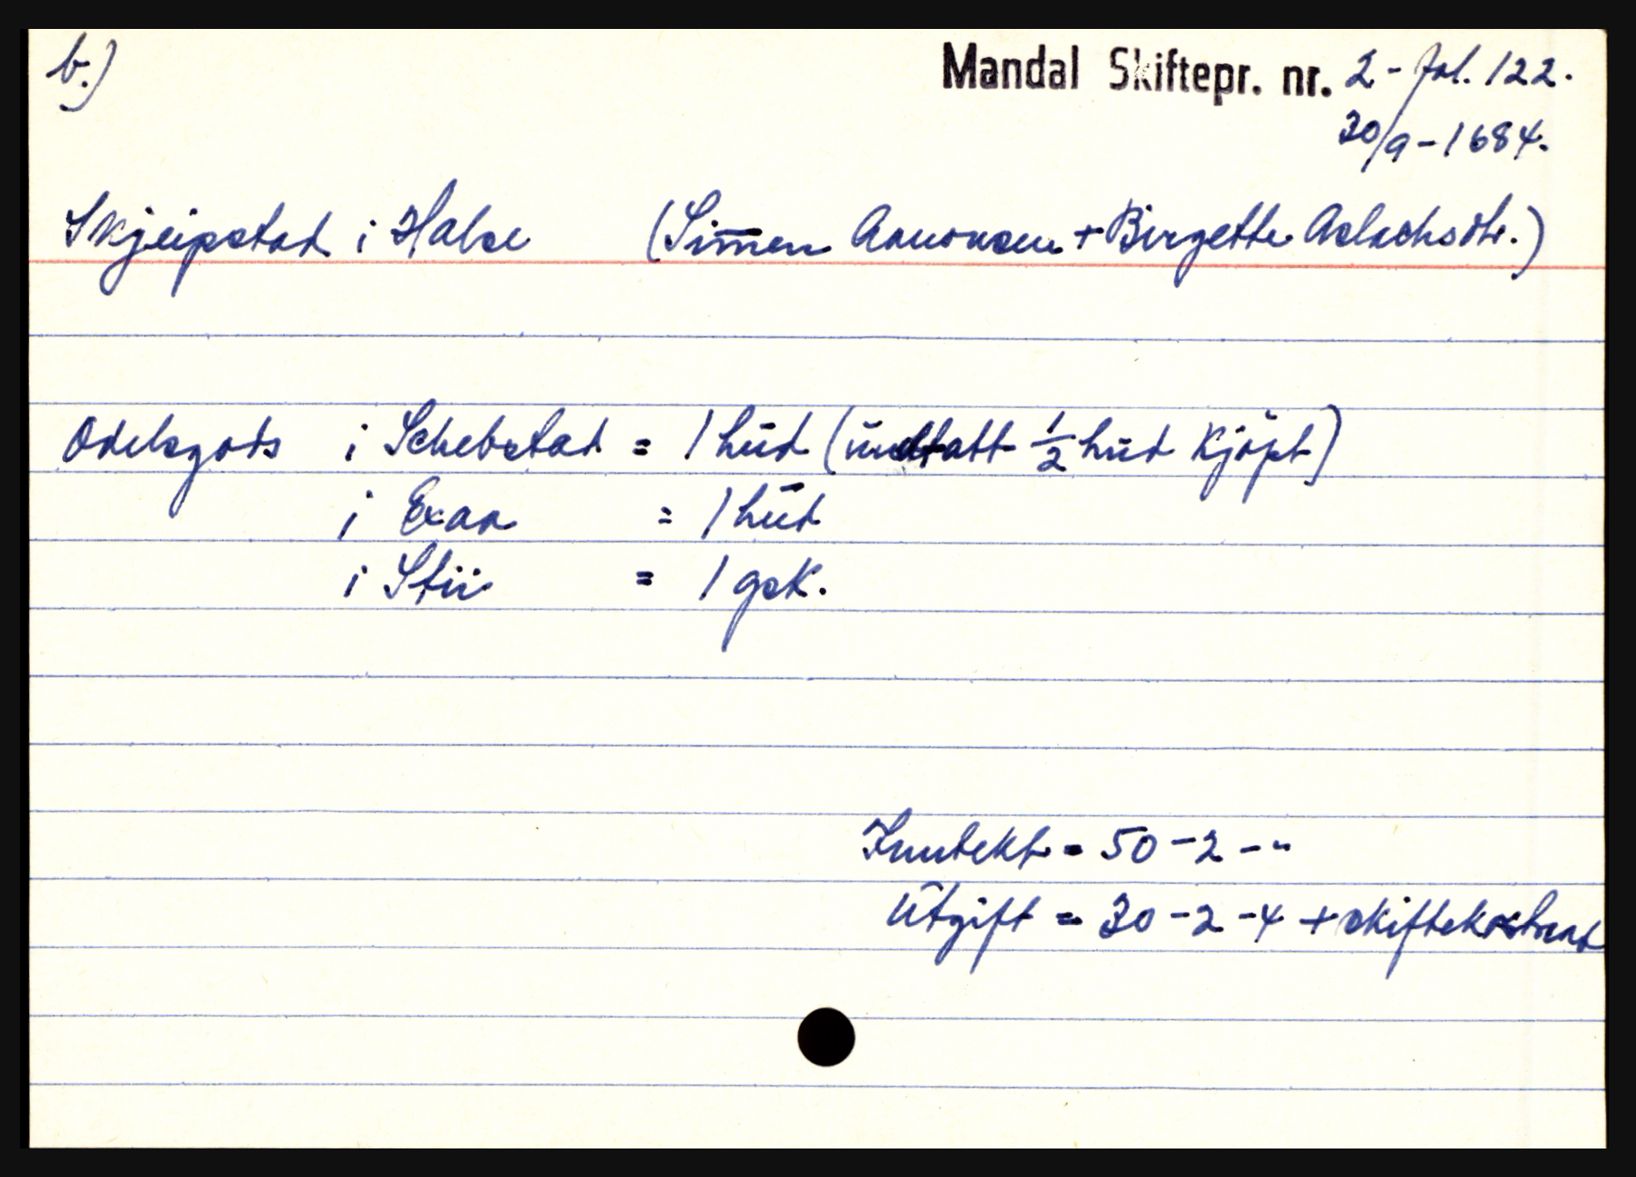 b.)
Mandal Skiftepr. nr. 2 - fol. 122.
30/9 - 1684.
Skjeipstad i Halse (Simen Aanonsen + Birgette Aslachsdtr.)
Odelsgods i Schebstad = 1 hud (undtatt 1/2 hud kjöpt)
i Exaa = 1 hud
i Stii = 1 gsk.
Inntekt = 50 - 2 - "
Utgift = 30 - 2 - 4 + skiftekostnad